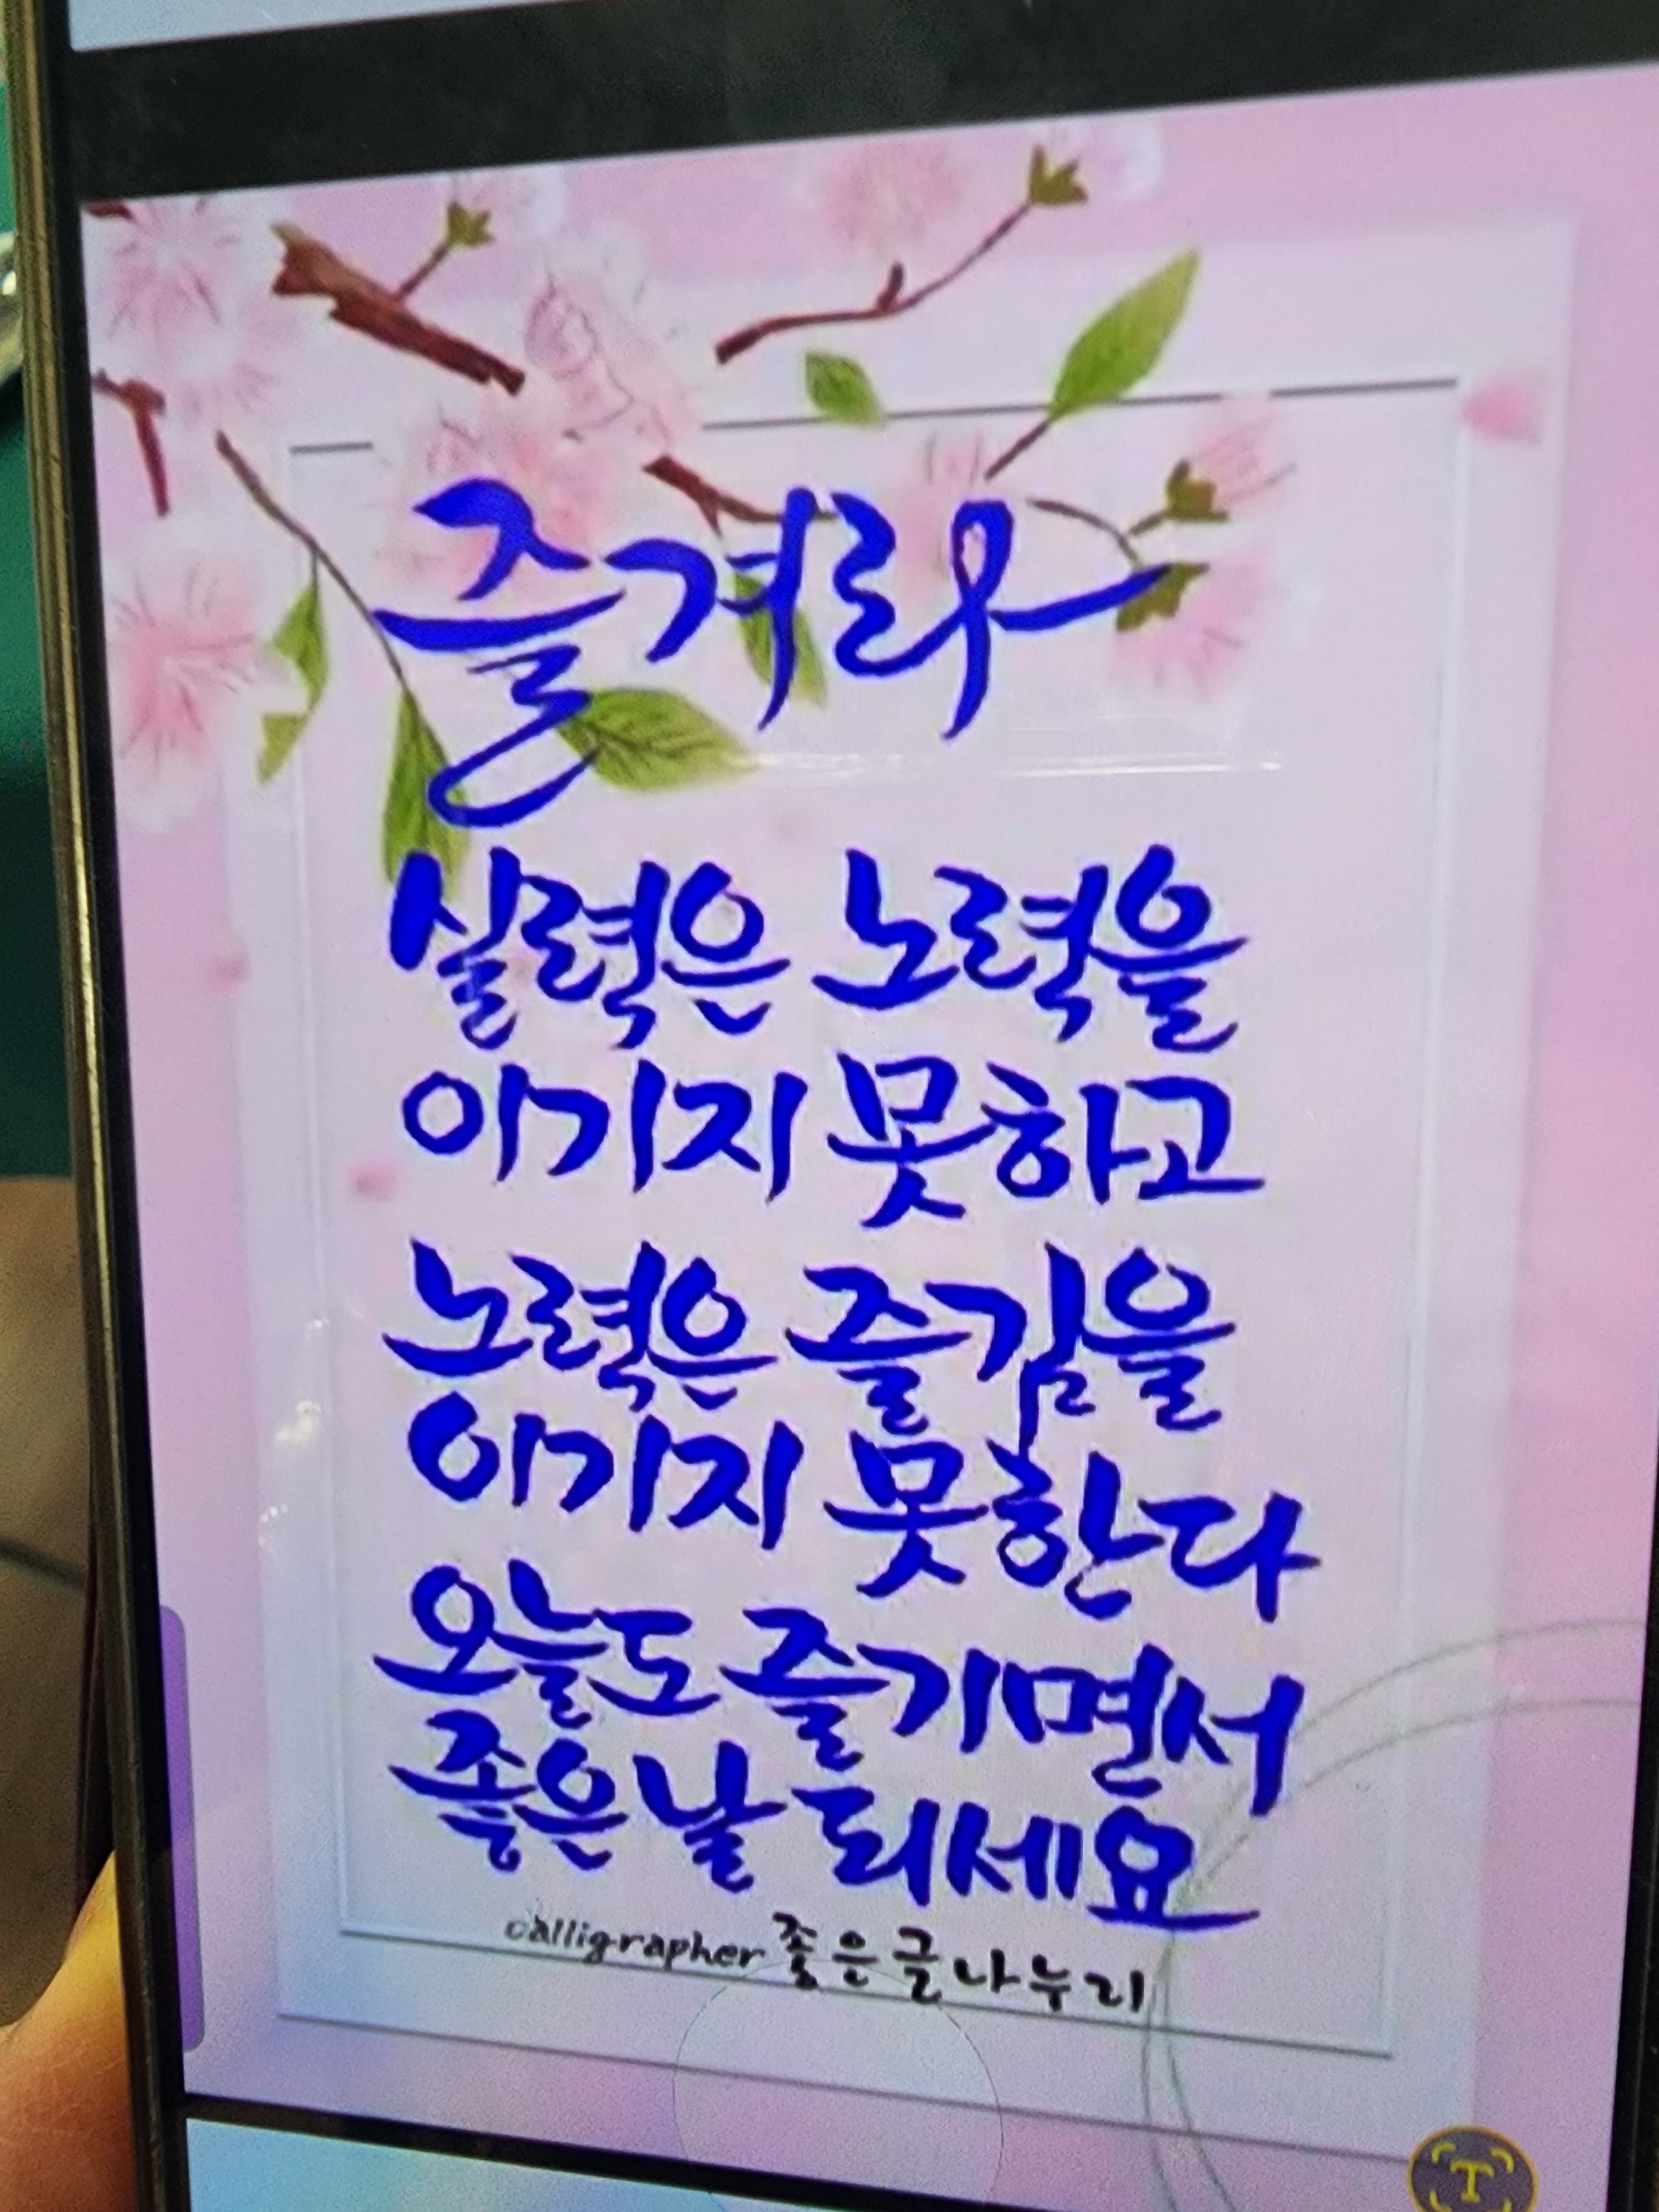 즐겨라
실력은 노력을
이기지 못하고
노력은 즐김을
이기지 못한다
오늘도 즐기면서
좋은날 되세요
calligrapher 좋은글나누리
T